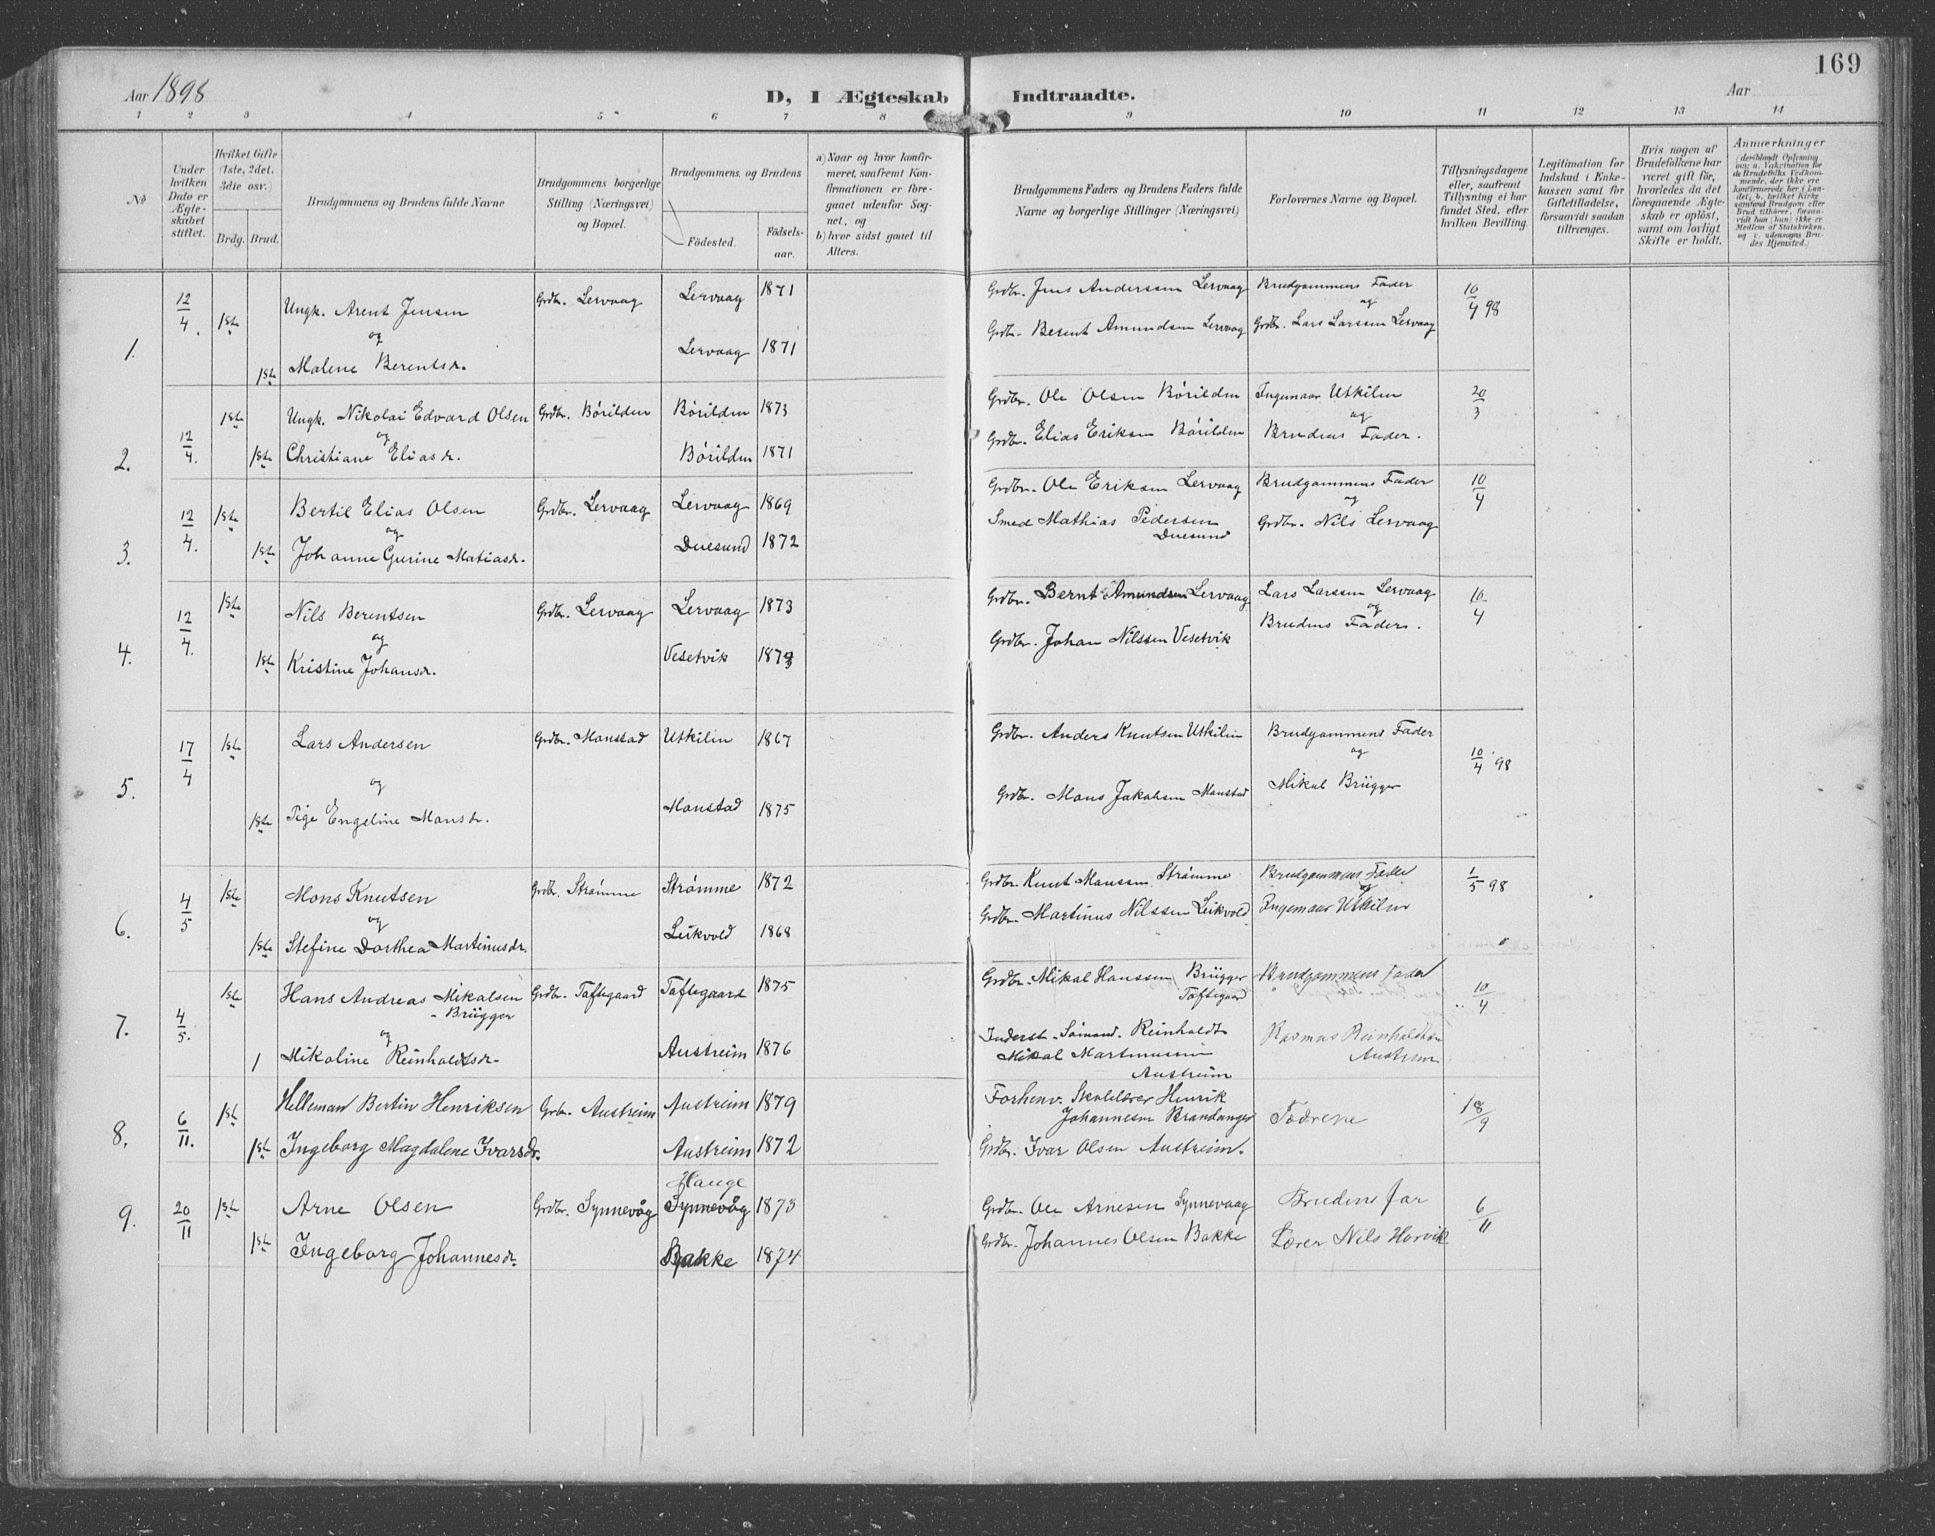 169
Aar 1898
D, I Ægteskab Indtraadte.
Aar
1 2 3 4 5 6 7 8 9 10 11 12 13 14
No
Under hvilken Dato er Ægteskabet stiftet.
Hvilket Gifte (1ste, 2det, 3die osv.)
Brdg. Brud.
Brudgommens og Brudens fulde Navne
Brudgommens borgerlige Stilling (Næringsvei) og Bopæl.
Brudgommens og Brudens
Födested.
Födselsaar.
a) Naar og hvor konfirmeret, saafremt Konfirmationen er foregaaet udenfor Sognet, og
b) hvor sidst gaaet til Alters.
Brudgommens Faders og Brudens Faders fulde Navne og borgerlige Stillinger (Næringsvei)
Forlovernes Navne og Bopæl.
Tillysningsdagene eller, saafremt Tillysning ei har fundet Sted, efter hvilken Bevilling.
Legitimation for Indskud i Enkekassen samt for Giftetilladelse, forsaavidt saadan tiltrænges.
Hvis nogen af Brudefolkene har været gift för, hvorledes da det foregaaende Ægteskab er oplöst, samt om lovligt Skifte er holdt.
Anmærkninger
(deriblandt Oplysning om: a. Vakcination for de Brudefolks Vedkommende, der ikke ere konfirmerede her i Landet; b. hvilket Kirkesamfund Brudgom eller Brud tilhörer, forsaavidt han (hun) ikke er Medlem af Statskirken, og c. udensogns Brudes Hjemsted.)
1. 12/4. 1ste Ungk. Arent Jensen Grdbr. Lervaag Lervaag 1871 Grdbr. Jens Anderssen Lervaag Brudgommens Fader 10/4 98
og og
1ste Malene Berentsdr. Lervaag 1871 Grdbr. Berent Amundsen Lervaag Grdbr. Lars Larssen Lervaag
2. 12/4. 1ste Ungk. Nikolai Edvard Olsen Grdbr. Børilden Børilden 1873 Grdbr. Ole Olsen Børilden Ingemaar Utkilen 20/3
og og
1ste Christiane Eliasdr. Børilden 1871 Grdbr. Elias Eriksen Børilden Brudens Fader.
3. 12/4. 1ste Bertil Elias Olsen Grdbr. Lervaag Lervaag 1869 Grdbr. Ole Eriksen Lervaag Brudgommens Fader 10/4
og og
1ste Johanne Gurine Matiasdr. Duesund 1872 Smed Mathias Pedersen Duesund Grdbr. Nils Lervaag
4. 12/4. 1ste Nils Berentsen Grdbr. Lervaag Lervaag 1873 Grdbr. Bernt Amundsen Lervaag Lars Larssen Lervaag 10/4
og og
1ste Kristine Johansdr. Vesetvik Grdbr. Johan Nilssen Vesetvik Brudens Fader.
5. 17/4 1ste Lars Andersen Grdbr. Monstad Utkilen 1867 Grdbr. Anders Knutsen Utkilen Brudgommens Fader 10/4 98
og og
1ste Pige Engeline Monsdr. Monstad 1875 Grdbr. Mons Jakobsen Monstad Mikal Brügger
6. 4/5 1ste Mons Knutsen Grdbr. Strømme Strømme 1872 Grdbr. Knut Monssen Strømme Brudgommens Fader 1/5 98
og og
1ste Stefine Dorthea Martinusdr. Leikvold 1868 Grdbr. Martinus Nilssen Leikvold Ingemaar Utkilen
7. 4/5. 1ste Hans Andreas Mikalsen Brügger Grdbr. Taftegaard Taftegaard 1875 Grdbr. Mikal Hanssen Brügger Taftegaard Brudgommens Fader 10/4
og
1 Mikoline Reinholdtsdr. Austreim 1876 Inderst. Sømand. Reinholdt Mikal Martinussen Austreim Rasmus Reinholdtsen Austreim
8. 6/11. 1ste Helleman Bertin Henriksen Grbr. Austreim Austreim 1879 Forhenv. Skolelærer Henrik Johannesen Brandanger Fædrene 18/9
1ste Ingeborg Magdalene Ivarsdr. Austreim 1872 Grdbr. Ivar Olsen Austreim.
9. 20/11 1ste Arne Olsen Grdbr. Synnevåg Hauge Synnevåg 1873 Grdbr. Ole Arnesen Synnevaag Brudens far 6/11
1ste Ingeborg Johannesdr. Bakke 1874 Grdbr. Johannes Olsen Bakke Lærer Nils Horvik